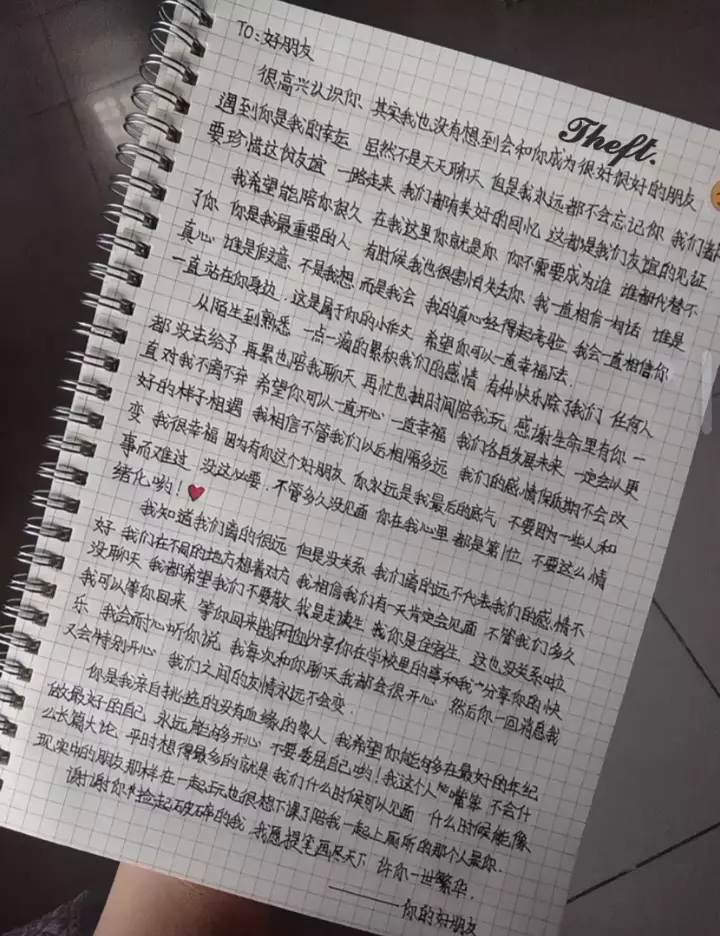 TO:好朋友
Theft.
很高兴认识你 其实我也没有想到会和你成为很好很好的朋友
遇到你是我的幸运 虽然不是天天聊天 但是我永远都不会忘记你 我们都
要珍惜这份友谊 一路走来 我们都有美好的回忆 这都是我们友谊的见证.
我希望能陪你很久 在我这里你就是你 你不需要成为谁 谁都代替不
了你 你是我最重要的人 有时候我也很害怕失去你 我一直相信一句话 谁是
真心 谁是假意 不是我想 而是我会 我的真心经得起考验 我会一直相信你
一直站在你身边. 这是属于你的小作文 希望你可以一直幸福下去.
从陌生到熟悉 一点一滴的累积我们的感情 有种快乐除了我们 任何人
都没法给予 再累也陪我聊天 再忙也抽时间陪我玩 感谢生命里有你 一
直对我不离不弃 希望你可以一直开心 一直幸福 我们各自发展未来 一定会以更
好的样子相遇 我相信不管我们以后相隔多远 我们的感情保质期不会改
变 我很幸福 因为有你这个好朋友 你永远是我最后的底气 不要因为一些人和
事而难过 没这必要. 不管多久没见面 你在我心里 都是第1位 不要这么情
绪化哟!❤
我知道我们离的很远 但是没关系 我们离的远不代表我们的感情不
好 我们在不同的地方想着对方 我相信我们有一天肯定会见面 不管我们多久
没聊天 我都希望我们不要散 我是走读生 我你是住宿生 这也没关系啦
我可以等你回来 等你回来分享你在学校里的事和我 分享你的快
乐 我会耐心听你说 我每次和你聊天我都会很开心 然后你一回消息我
又会特别开心 我们之间的友情永远不会变.
你是我亲自挑选的没有血缘的家人 我希望你能够在最好的年纪
做最好的自己 永远能够开心 不要委屈自己哟!我这个人嘴笨 不会什
么长篇大论 平时想得最多的就是我们什么时候可以见面 什么时候能像
现实中的朋友那样在一起玩也很想下课了陪我一起上厕所的那个人是你.
谢谢你捡起破碎的我 我愿提笔画尽天下 许你一世繁华.
——你的好朋友